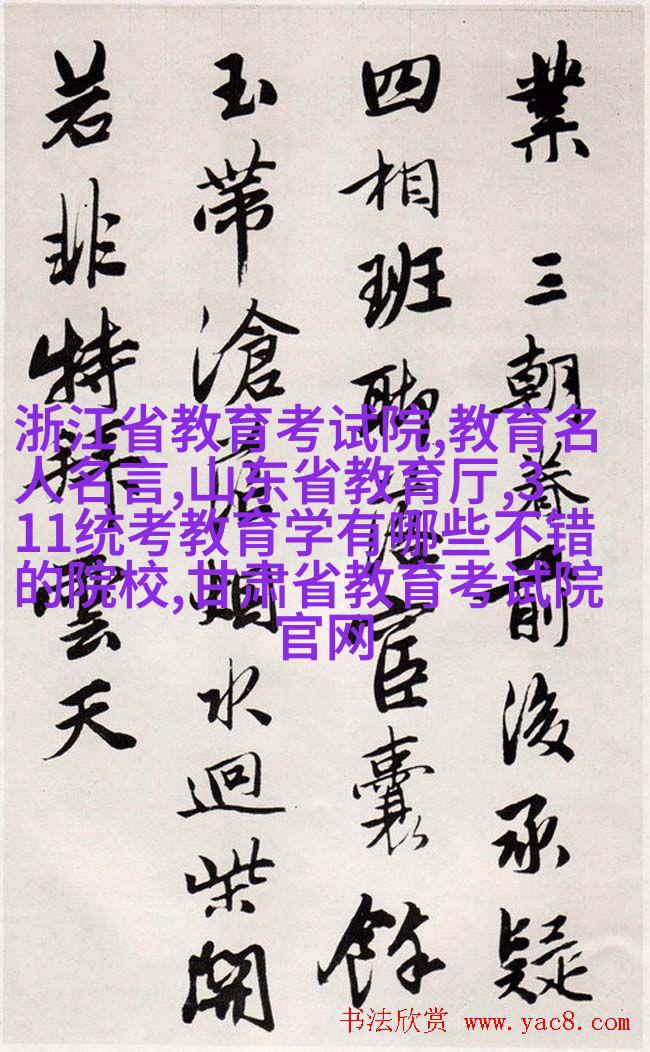 業三朝前後承疑
四相班聯宦囊餘
玉帶滄煙水迴柴開
若非特雲天
浙江省教育考试院,教育名
人名言,山东省教育厅,3
11统考教育学有哪些不错
的院校,甘肃省教育考试院
官网
书法欣赏 www.yac8.com